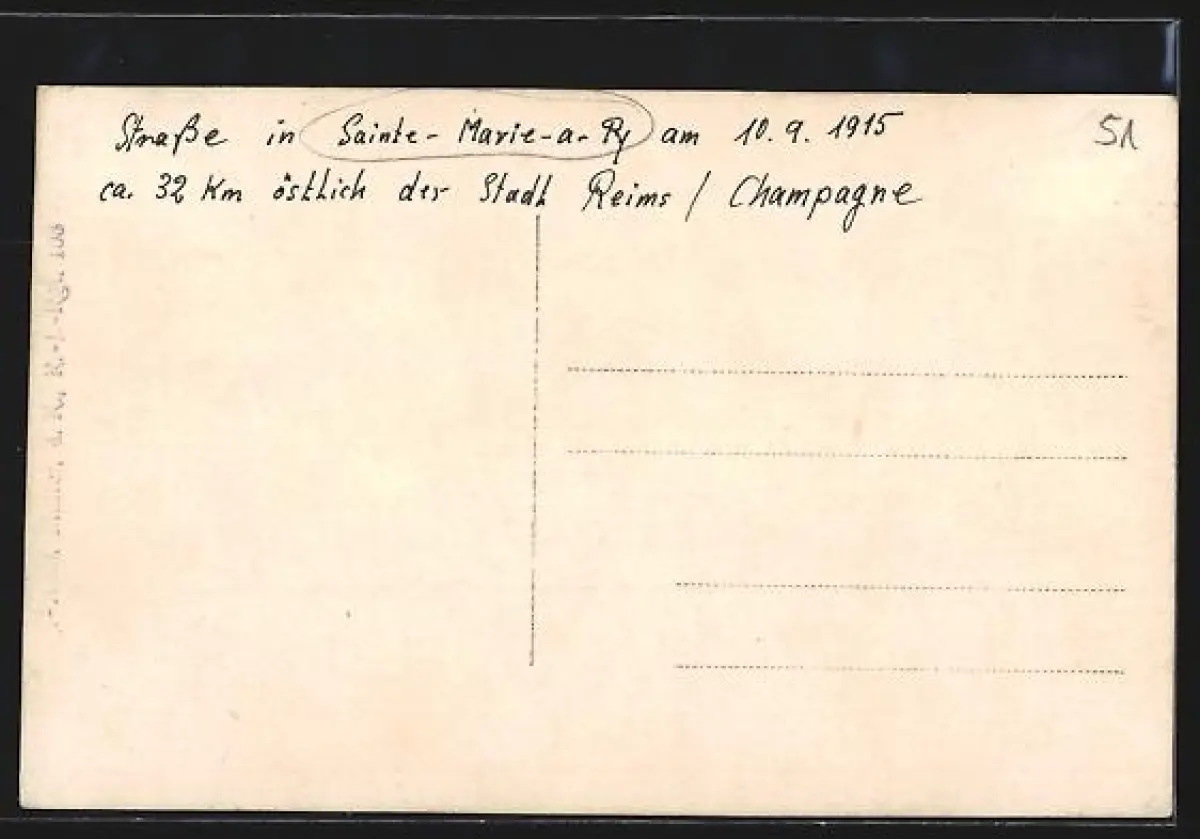 Straße in Sainte-Marie-a-Py am 10.9.1915
ca. 32 Km östlich der Stadt Reims / Champagne
51